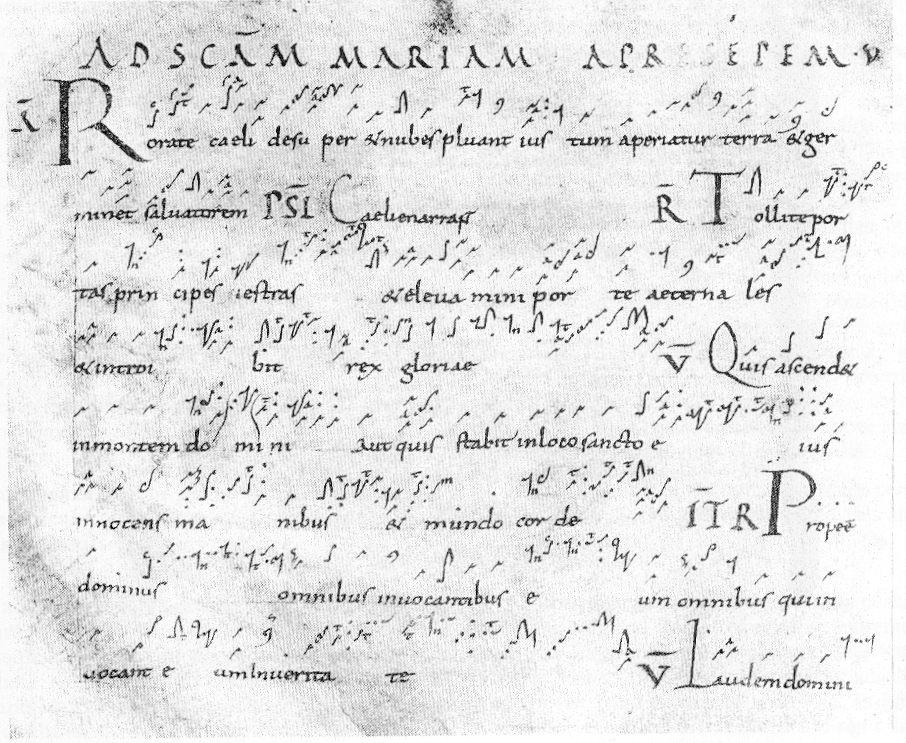 AD SCĀM MARIAM A PRESEPEM · V
Ā Rorate caeli desu per &nubes pluant ius tum aperiatur terra &ger
minet salvatorem PSL Caelienarrant R̄ Tollite por
tas prin cipes vestras &eleva mini por te aeterna les
&introi bit rex gloriae V̄ Quis ascend&
inmontem do mi ni Aut quis stabit inloco sancto e ius
innocens ma nibus & mundo cor de ĪT R Prope e
dominus omnibus invocantibus e um omnibus qui in
vocant e um Inverita te V̄ Laudem domini